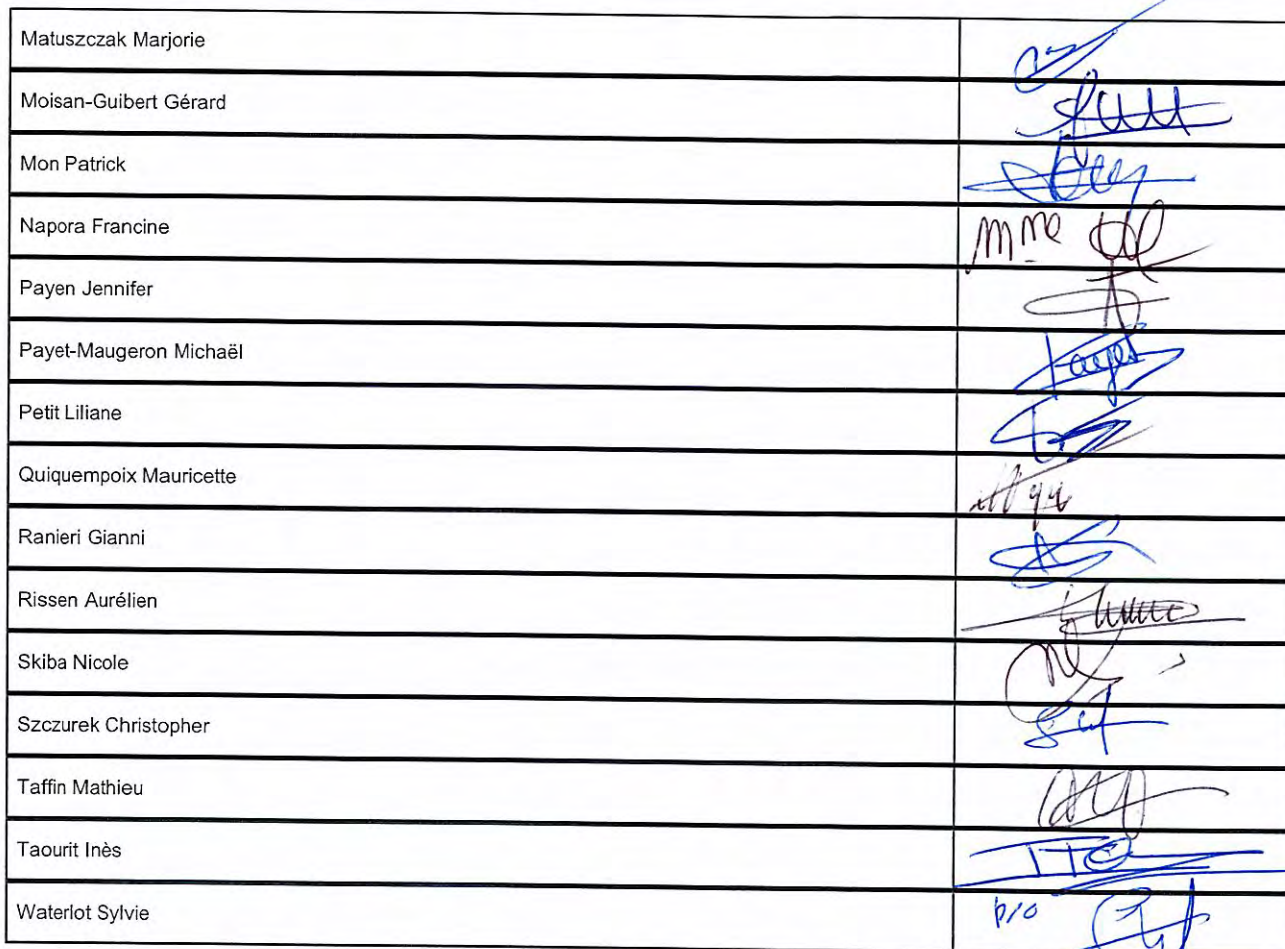 Matuszczak Marjorie
Moisan-Guibert Gérard
Mon Patrick
Napora Francine
Mme
Payen Jennifer
Payet-Maugeron Michaël
Payet
Petit Liliane
Quiquempoix Mauricette
Ranieri Gianni
Rissen Aurélien
Skiba Nicole
Szczurek Christopher
Taffin Mathieu
Taourit Inès
Waterlot Sylvie
p/o